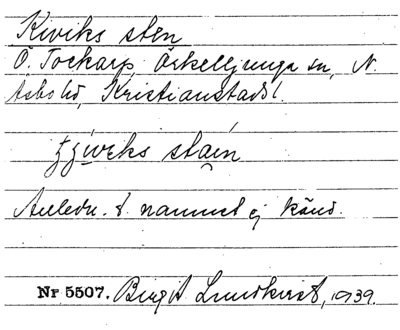 Kiviks sten
Ö. Tockarp Örkelljunga sn, N.
Åsbo hd, Kristianstads l.
sta͠in
Anledn. t. namnet ej känd.
Nr 5507. Birgit Lundkvist, 1939.